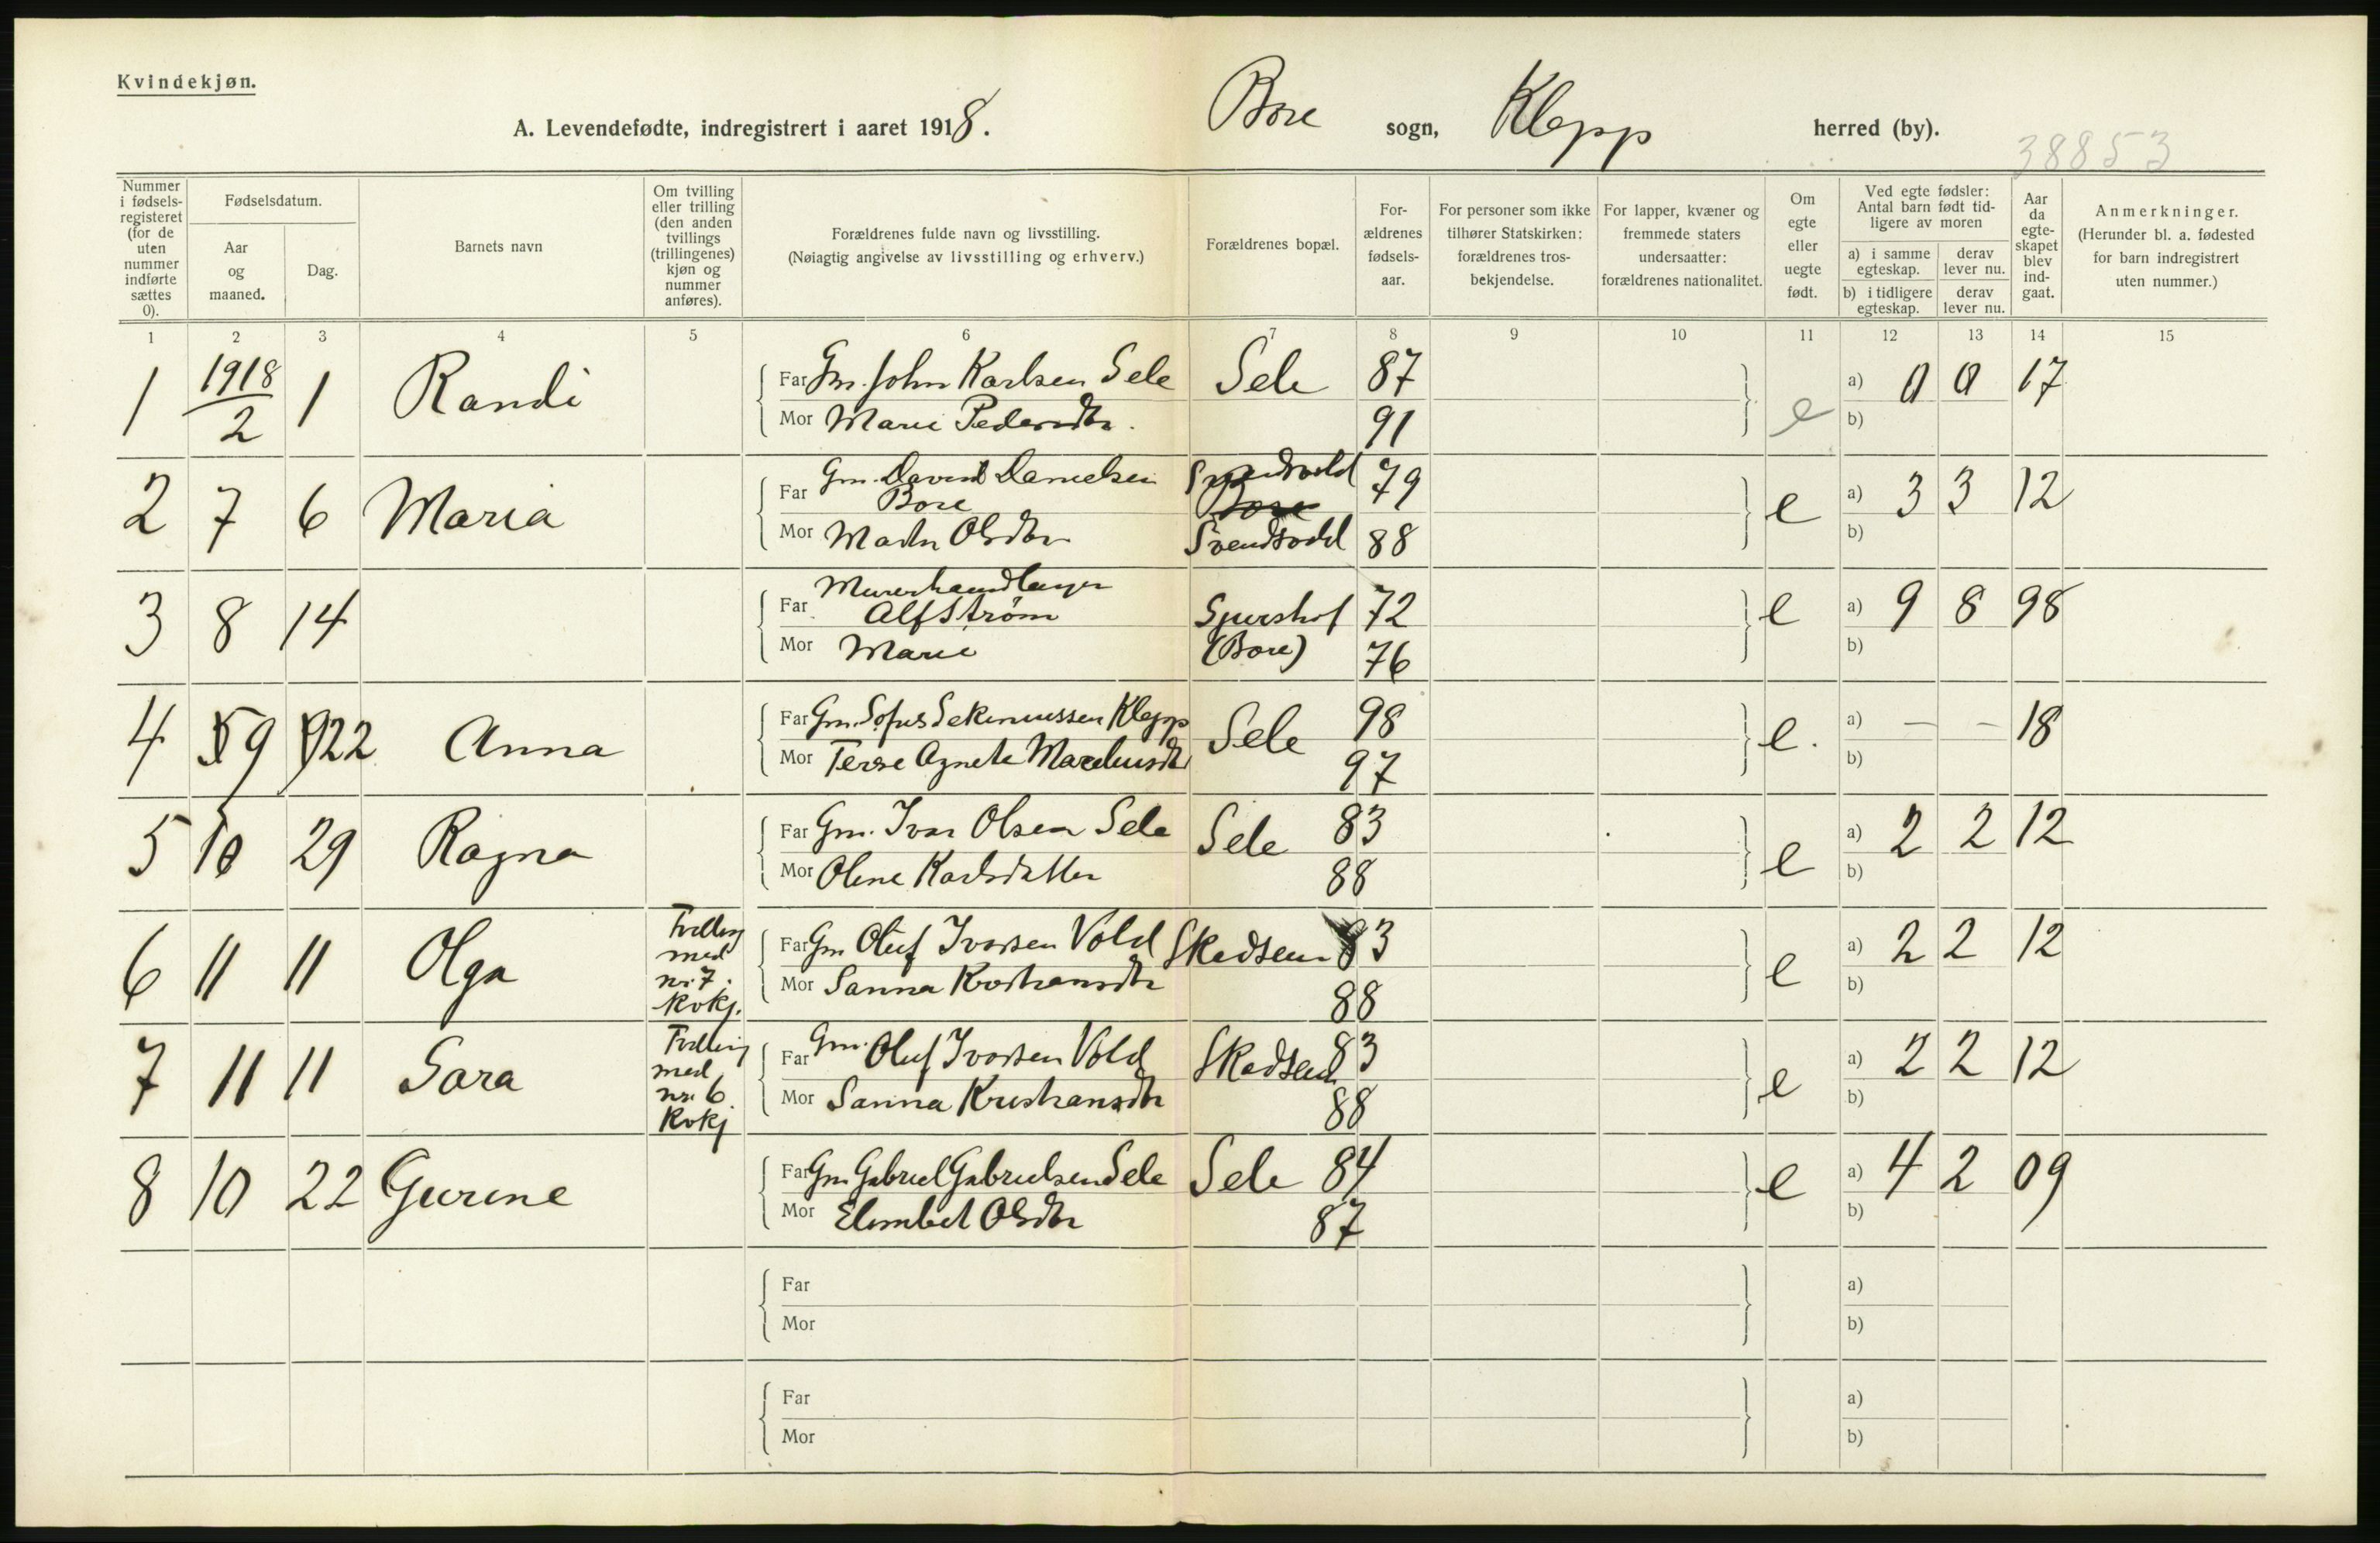 Kvindekjøn.
A. Levendefødte, indregistrert i aaret 1918. Bore sogn, Klepp herred (by).
38853
Nummer i fødselsregisteret (for de uten nummer indførte sættes 0).
Fødselsdatum.
Aar og maaned.
Dag.
Barnets navn
Om tvilling eller trilling (den anden tvillings (trillingenes) kjøn og nummer anføres).
Forældrenes fulde navn og livsstilling.
(Nøiagtig angivelse av livsstilling og erhverv.)
Forældrenes bopæl.
Forældrenes fødselsaar.
For personer som ikke tilhører Statskirken: forældrenes trosbekjendelse.
For lapper, kvæner og fremmede staters undersaatter: forældrenes nationalitet.
Om egte eller uegte født.
Ved egte fødsler: Antal barn født tidligere av moren
a) i samme egteskap. derav lever nu.
b) i tidligere egteskap. derav lever nu.
Aar da egteskapet blev indgaat.
Anmerkninger.
(Herunder bl. a. fødested for barn indregistrert uten nummer.)
1 2 3 4 5 6 7 8 9 10 11 12 13 14 15
1 1918/2 1 Randi Far Gm. John Karlsen Sele Sele 87 e a) 0 0 17
Mor Marie Pedersdtr. 91 b)
2 7 6 Maria Far Gm. David Danielsen Bore Svendsvold Bore 79 e a) 3 3 12
Mor Olsdtr Svendsvold 88 b)
3 8 14 Far Murerhandlanger Alf Strøm (Bore) 72 e a) 9 8 98
Mor Marie 76 b)
4 9 22 Anna Far Gm. Sofus Klepp Sele 98 e. a) – – 18
Mor Agnete 97 b)
5 10 29 Ragna Far Gm. Ivar Olsen Sele Sele 83 e a) 2 2 12
Mor Olene Karlsdatter 88 b)
6 11 11 Olga Tvilling med nr. 7. Kvkj. Far Gm Oluf Ivarsen Vold Skadsem 83 e a) 2 2 12
Mor Sanna Kristiansdtr 88 b)
7 11 11 Sara Tvilling med nr. 6. Kvkj Far Gm. Oluf Ivarsen Vold Skadsem 83 e a) 2 2 12
Mor Sanna Kristiansdtr 88 b)
8 10 22 Gurine Far Gm Gabriel Gabrielsen Sele Sele 84 e a) 4 2 09
Mor Olsdtr 87 b)
Far a)
Mor b)
Far a)
Mor b)